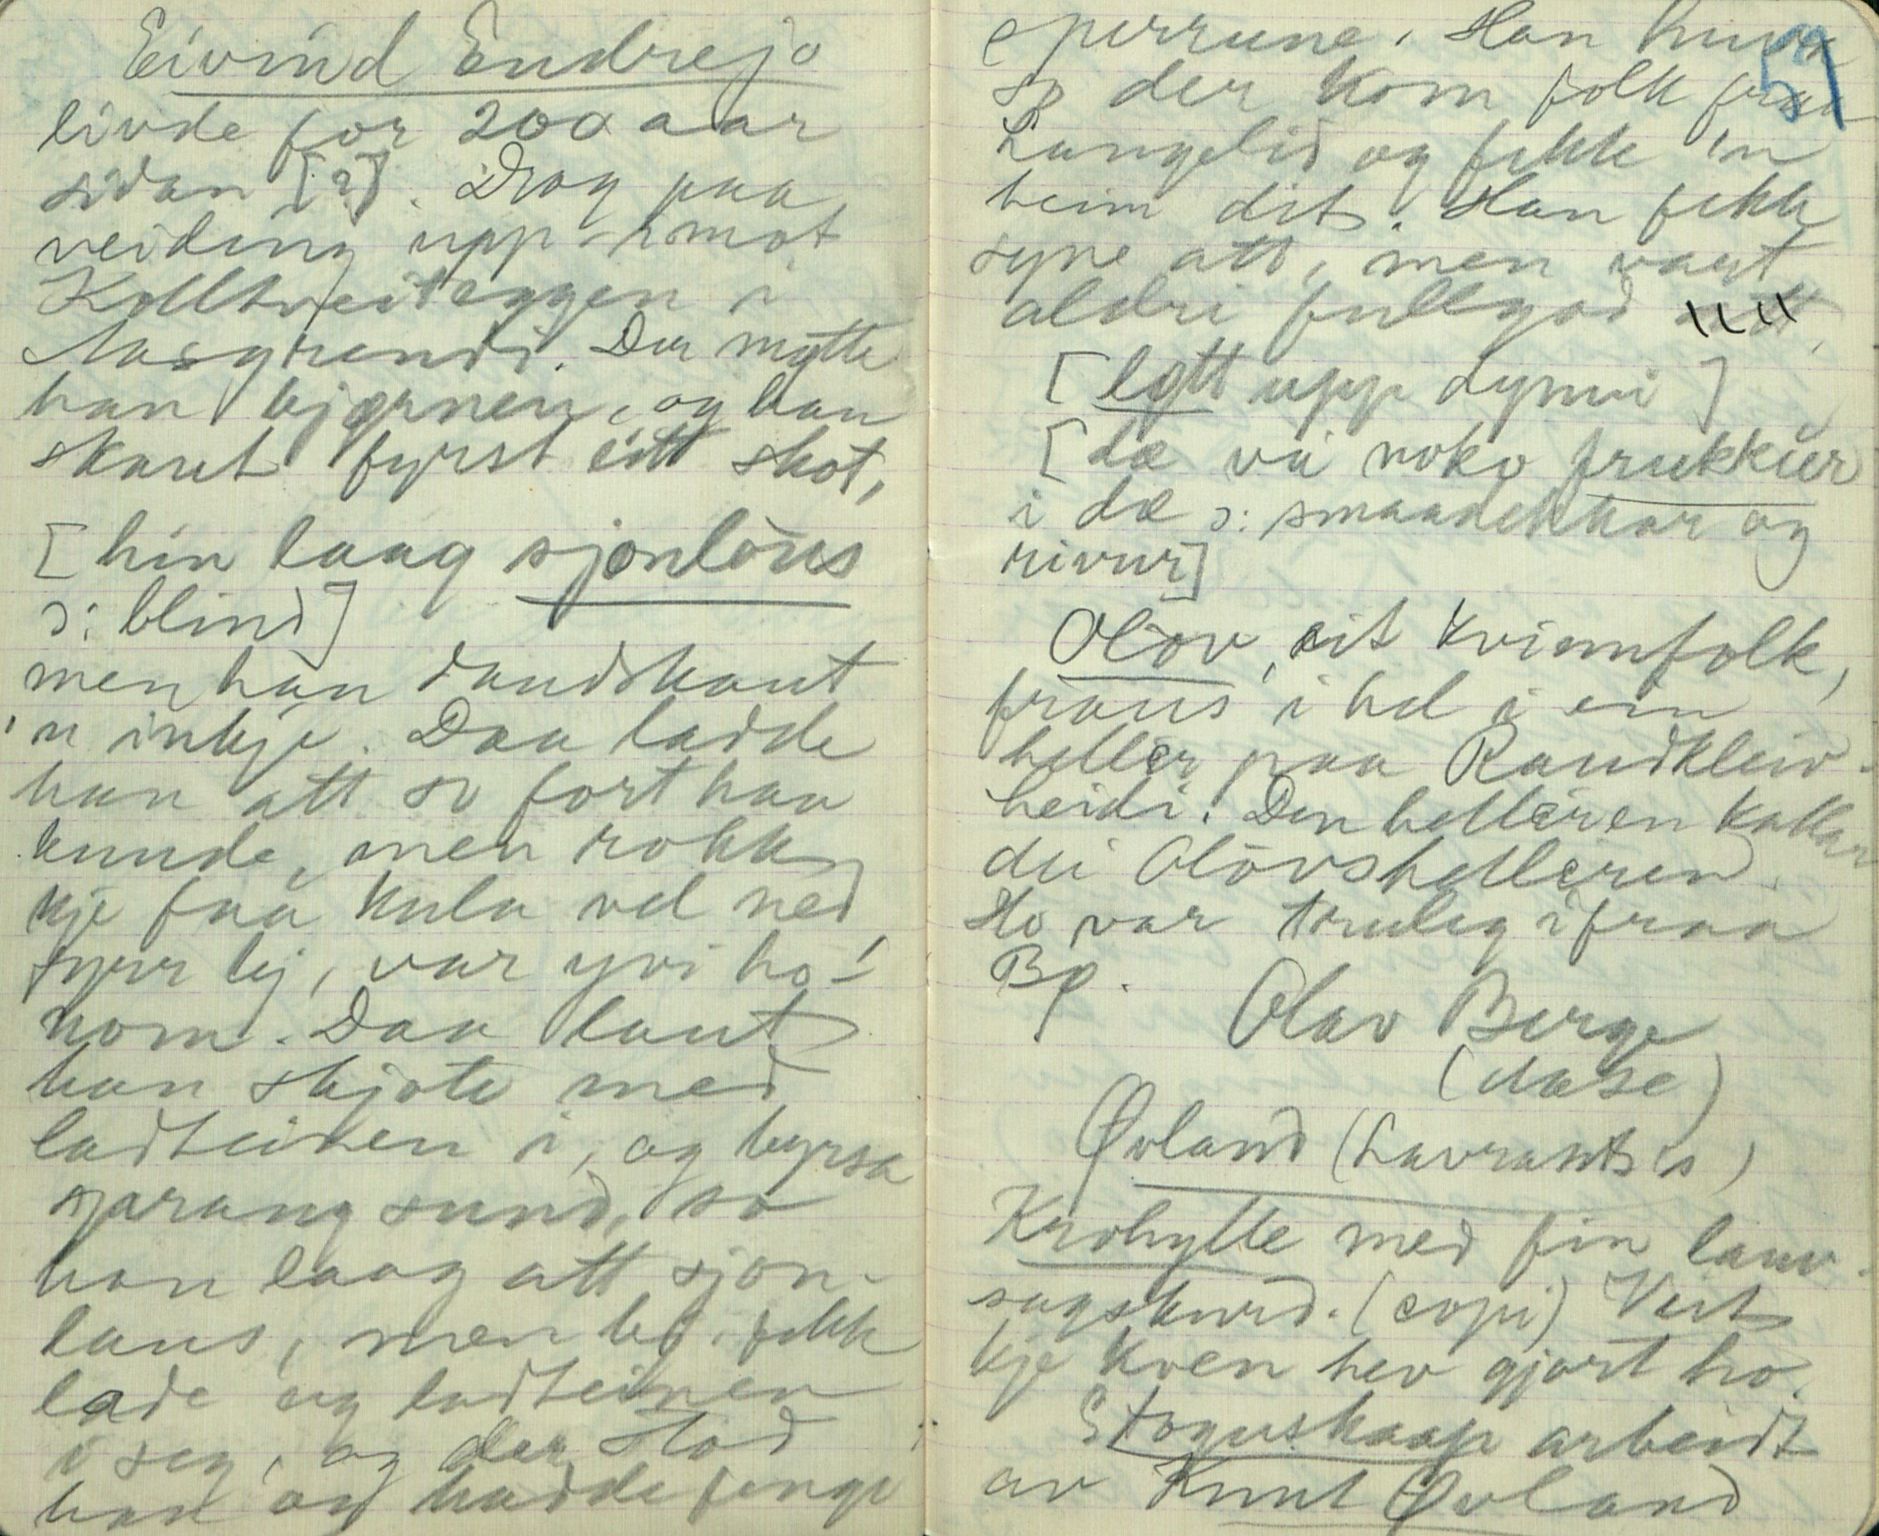 Eivind Endrejo
livde for 200 aar
sidan [?]. Drog paa
veiding upp-imot
Kolltveiteggen i
Aasgrendi. Der møtte
han bjørnen, og han
skaut fyrst eitt skot,
[hin laag sjonlòus
ɔ: blind]
men han daudskaut
'n inkje. Daa ladde
han att so fort han
kunde, men rokk
kje faa kula vel ned
fyrr bj, var yvi ho-
nom. Daa laut
han skjote med
ladteinen i, og byrsa
sprang sund, so
han laag att sjon-
laus, men bj. fekk
lade og ladteinen
i seg, og der stod
han og hadde fenge
sperrune. Han huva
so der kom folk fraa
Langelid og fekk 'n
heim dit. Han fekk
syne att, men vart
aldri fullgod
[lott upp dynni]
[dæ va noko frukkur
i dæ ɔ: smaadekkar og
rivur]
Olòv, eit kvinnfolk,
fraus i hel i ein
heller paa Raudkleiv-
heidi. Den helleren kallar
dei Olòvshelleren.
Ho var truleg ifraa
Bø.
Olav Berge
(dæse)
Øvland (Lavrants's)
Krohylle med fin lauv-
sagskurd. (copi) Veit
kje kven hev gjort ho.
Stoguskaap arbeidt
av Knut Øvland
57